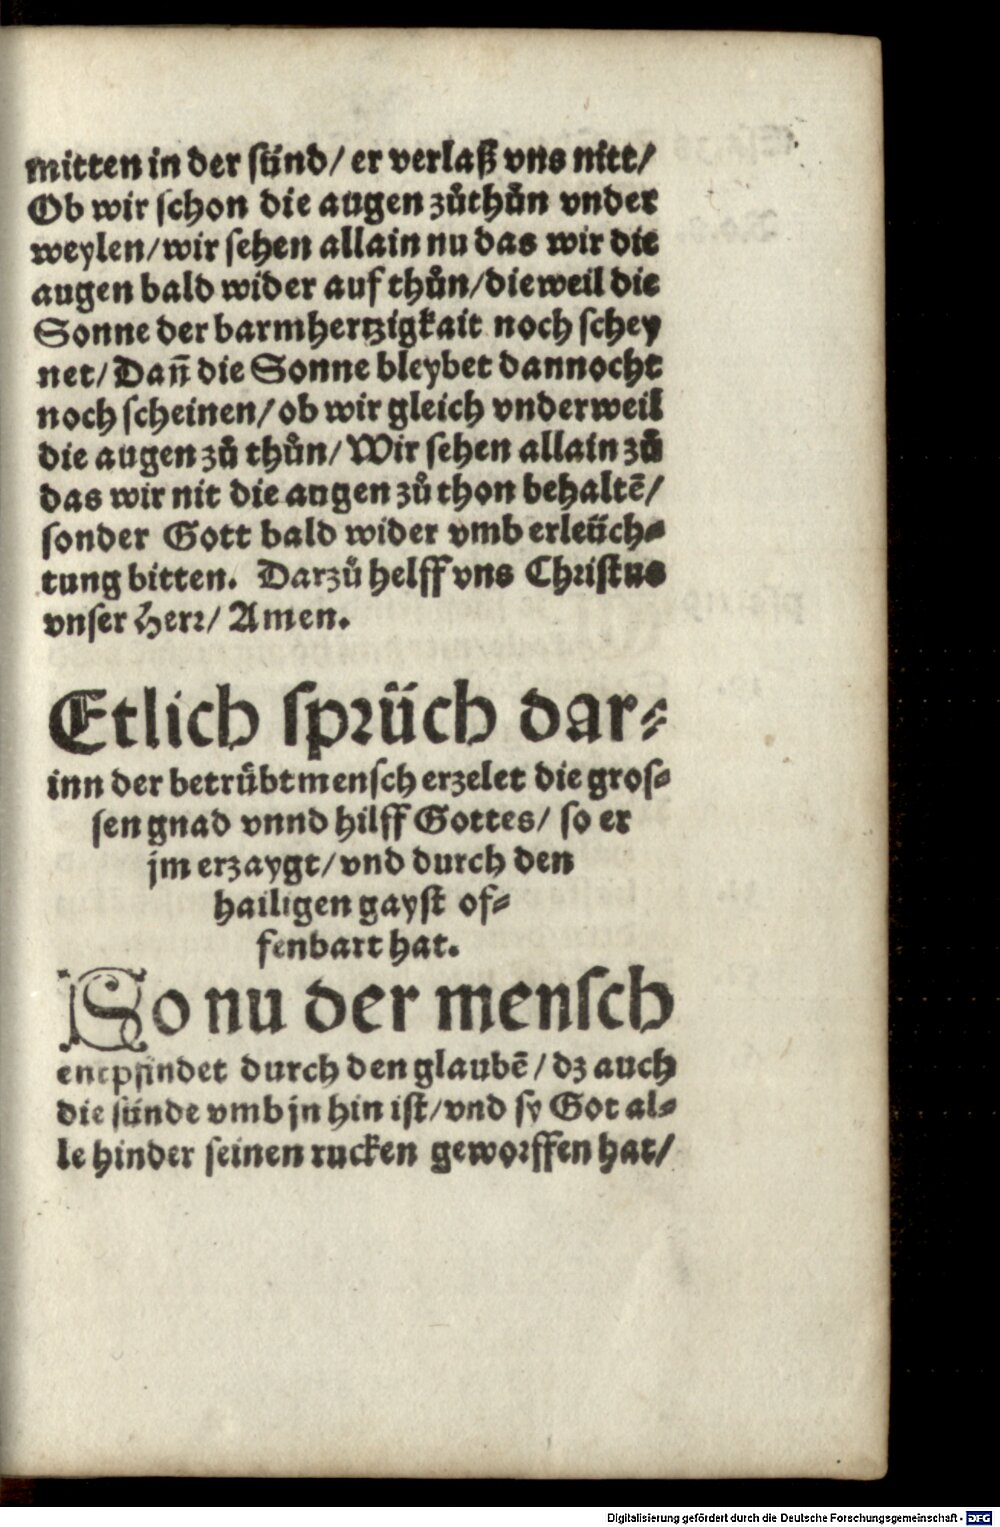 mitten in der sünd/ er verlaß vns nitt/
Ob wir schon die augen zůthůn vnder
weylen/wir sehen allain nu das wir die
augen bald wider auf thůn/dieweil die
Sonne der barmhertzigkait noch schey
net/Dañ die Sonne bleybet dannocht
noch scheinen/ob wir gleich vnderweil
die augen zů thůn/Wir sehen allain zů
das wir nit die augen zů thon behaltē/
sonder Gott bald wider vmb erleüch⸗
tung bitten. Darzů helff vns Christus
vnser Herr/ Amen.
Etlich sprüch dar⸗
inn der betrübt mensch erzelet die gros⸗
sen gnad vnnd hilff Gottes/ so er
jm erzaygt/vnd durch den
hailigen gayst of⸗
fenbart hat.
So nu der mensch
entpfindet durch den glaubē/dz auch
die sünde vmb jn hin ist/vnd sy Got al⸗
le hinder seinen rucken geworffen hat/
Digitalisierung gefördert durch die Deutsche Forschungsgemeinschaft - DFG